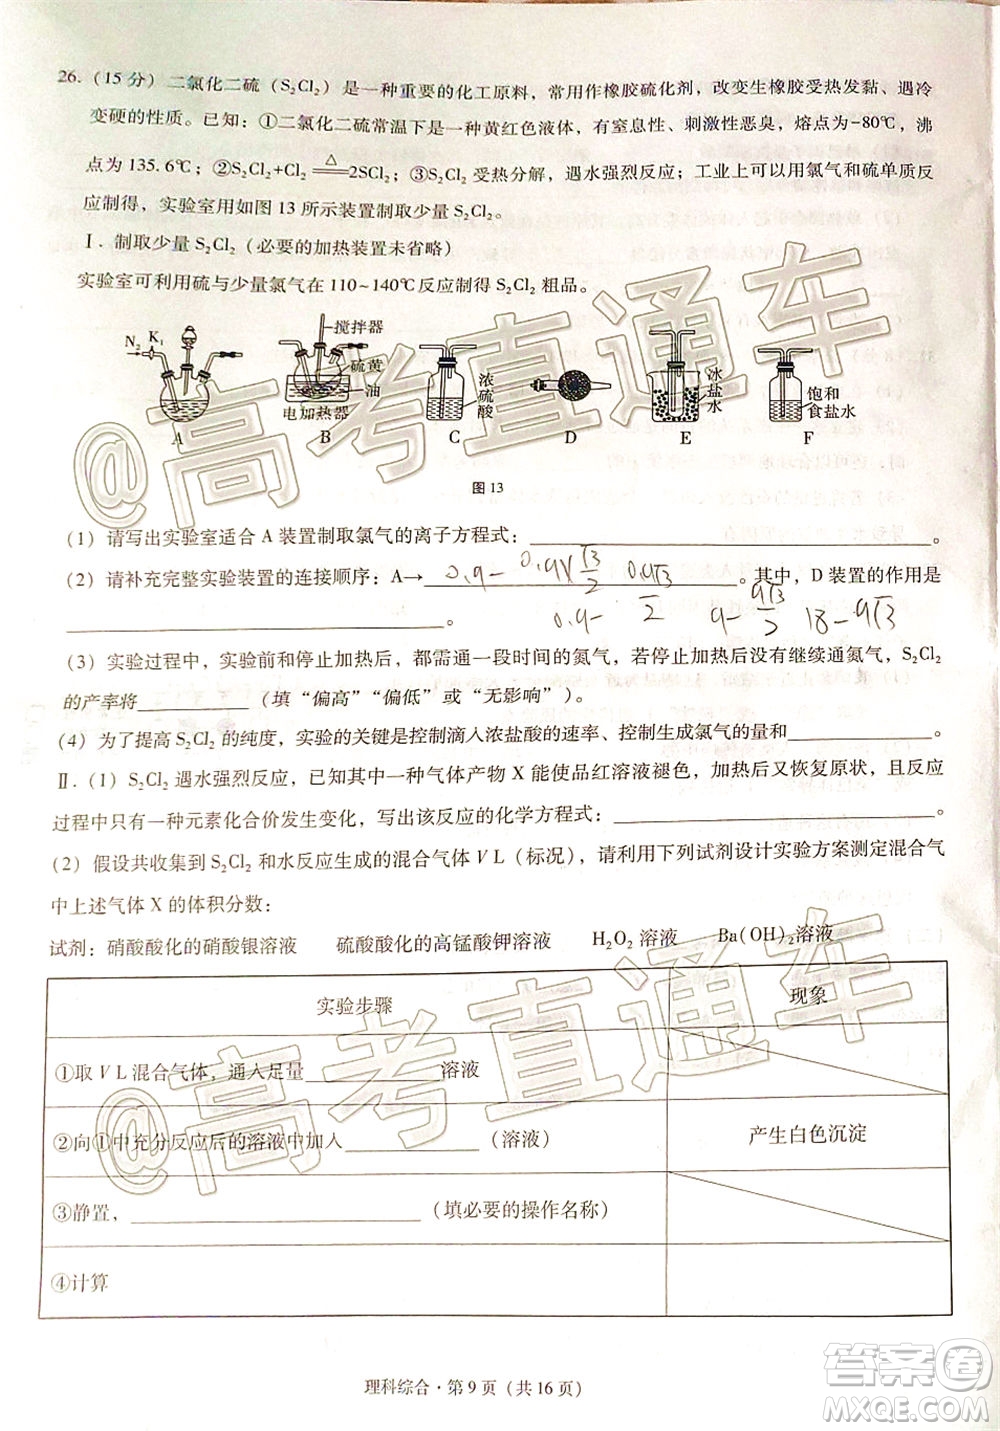 26.（15 分）二氯化二硫（S₂Cl₂）是一种重要的化工原料，常用作橡胶硫化剂，改变生橡胶受热发黏、遇冷
变硬的性质。已知：①二氯化二硫常温下是一种黄红色液体，有窒息性、刺激性恶臭，熔点为-80℃，沸
点为 135.6℃；②S₂Cl₂+Cl₂ ══△══ 2SCl₂；③S₂Cl₂ 受热分解，遇水强烈反应；工业上可以用氯气和硫单质反
应制得，实验室用如图 13 所示装置制取少量 S₂Cl₂。
Ⅰ. 制取少量 S₂Cl₂（必要的加热装置未省略）
实验室可利用硫与少量氯气在 110~140℃反应制得 S₂Cl₂ 粗品。
N₂ K₁ 搅拌器 硫黄 油 电加热器 浓硫酸 冰盐水 饱和食盐水
A B C D E F
图 13
（1）请写出实验室适合 A 装置制取氯气的离子方程式：____。
（2）请补充完整实验装置的连接顺序：A→____。其中，D 装置的作用是
____。
0.9- 0.9√3/2
0.9- 9- 9√3/2 18-9√3
（3）实验过程中，实验前和停止加热后，都需通一段时间的氮气，若停止加热后没有继续通氮气，S₂Cl₂
的产率将____（填“偏高”“偏低”或“无影响”）。
（4）为了提高 S₂Cl₂ 的纯度，实验的关键是控制滴入浓盐酸的速率、控制生成氯气的量和____。
Ⅱ.（1）S₂Cl₂ 遇水强烈反应，已知其中一种气体产物 X 能使品红溶液褪色，加热后又恢复原状，且反应
过程中只有一种元素化合价发生变化，写出该反应的化学方程式：____。
（2）假设共收集到 S₂Cl₂ 和水反应生成的混合气体 V L（标况），请利用下列试剂设计实验方案测定混合气
中上述气体 X 的体积分数：
试剂：硝酸酸化的硝酸银溶液 硫酸酸化的高锰酸钾溶液 H₂O₂ 溶液 Ba(OH)₂溶液
实验步骤 现象
①取 V L 混合气体，通入足量____溶液
②向①中充分反应后的溶液中加入____（溶液） 产生白色沉淀
③静置，____（填必要的操作名称）
④计算
理科综合·第 9 页（共 16 页）
@高考直通车
@高考直通车
答案卷
MXQE.COM